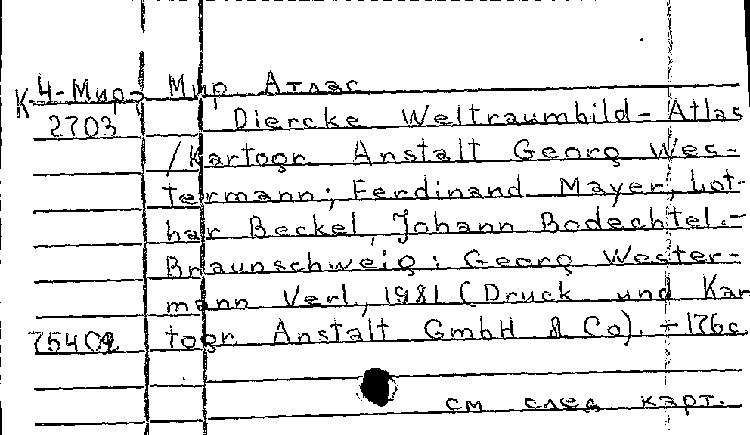 К 4-Мир- Мир Атлас
2703 Diercke Weltraumbild-Atlas
/Kartogr. Anstalt Georg Wes-
termann; Ferdinand Mayer, Lot-
har Beckel, Johann Bodechtel.-
Braunschweig: Georg Wester-
mann Verl., 1981 (Druck und Kar
togr Anstalt GmbH & Co). - 176c
см след карт.